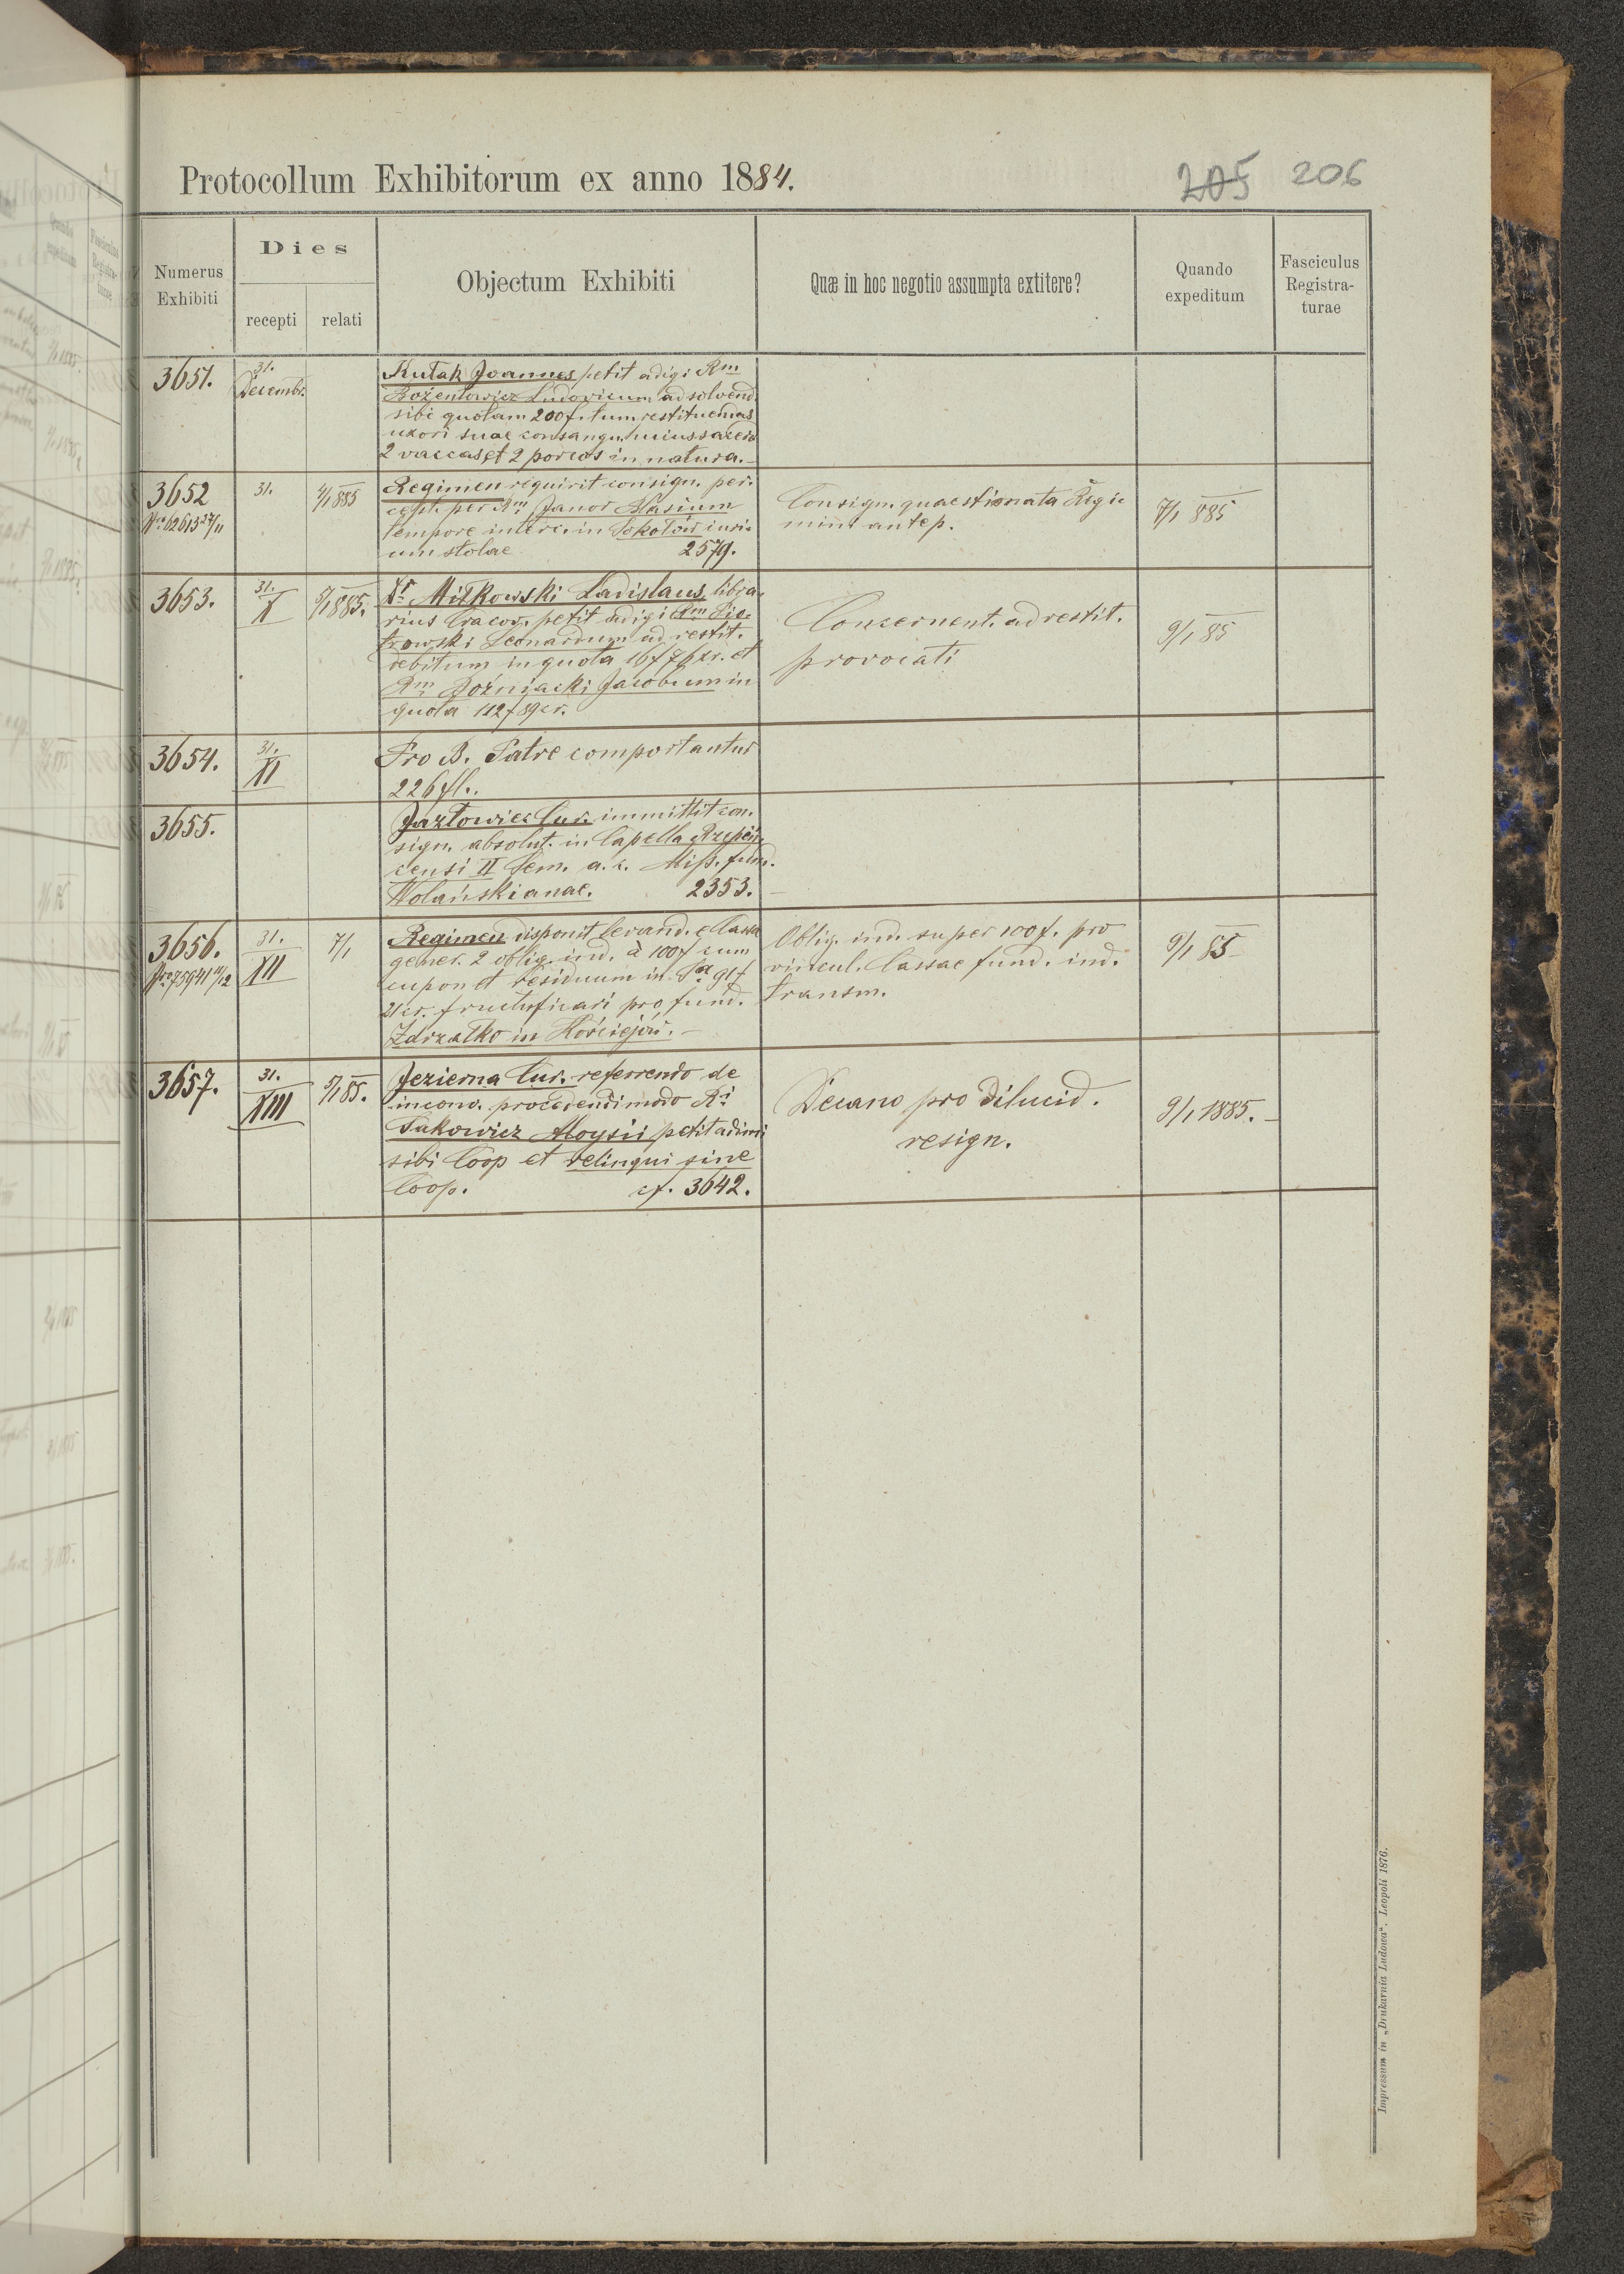 Protocollum Exhibitorum ex anno 1884.
205 206
Numerus Exhibiti
Dies
recepti
relati
Objectum Exhibiti
Quæ in hoc negotio assumpta extitere?
Quando expeditum
Fasciculus Registra-
turae
3651.
31.
Decembr.
Kutak Joannes petit adigi Rm
Rożentowicz Ludovicum ad solvend.
sibi quotam 200 f. tum restituendas
uxori suae consangu.
2 vaccas et 2 porcos in natura.-
3652
Nro 62613 27/11
31.
4/1 885
Regimen requirit consign. per-
cept. per Rm Janor Blasium
tempore interc. in Sokołów iuri-
um stolae 2579.
Consign. quaestionata Regi-
mini antep.
7/1 885
3653.
31.
X
5/1 885.
Dr Miłkowski Ladislaus libra-
rius Cracov. petit adigi Rm Pio-
trowski Leonardum ad restit.
debitum in quota 16 f 76 xr. et
Rm Woźniacki Jacobum in
quota 112 f 89 cr.
Concernent. ad restit.
provocati
9/1 85
3654.
31.
XI
Pro B. Patre comportantur
226 fl.
3655.
Jazłowiec Cur. immittit con-
sign. absolut. in Capella Rzepin-
censi II Sem. a. c. Miss. fund.
Wolańskianae. 2353.
3656.
Nro 75941 11/12
31.
XII
7/1
Regimen disponit levand. e Cassa
gener. 2 oblig. ind. à 100 f cum
cupon et residuum in Sa 91 f
21 cr. fructificari pro fund.
Zdrzałko in Kościejów.-
Oblig. ind. super 100 f. pro
vincul. Cassae fund. ind.
transm.
9/1 85
3657.
31.
XIII
5/1 85.
Jezierna Cur. referendo de
inconv. procedendi modo Ri
Takowicz Aloysii petit adimi
sibi Coop et relinqui sine
Coop. cf. 3642.
Decano pro dilucid.
resign.
9/1 1885.-
Impressum in „Drukarnia Ludowa“. Leopoli 1876.